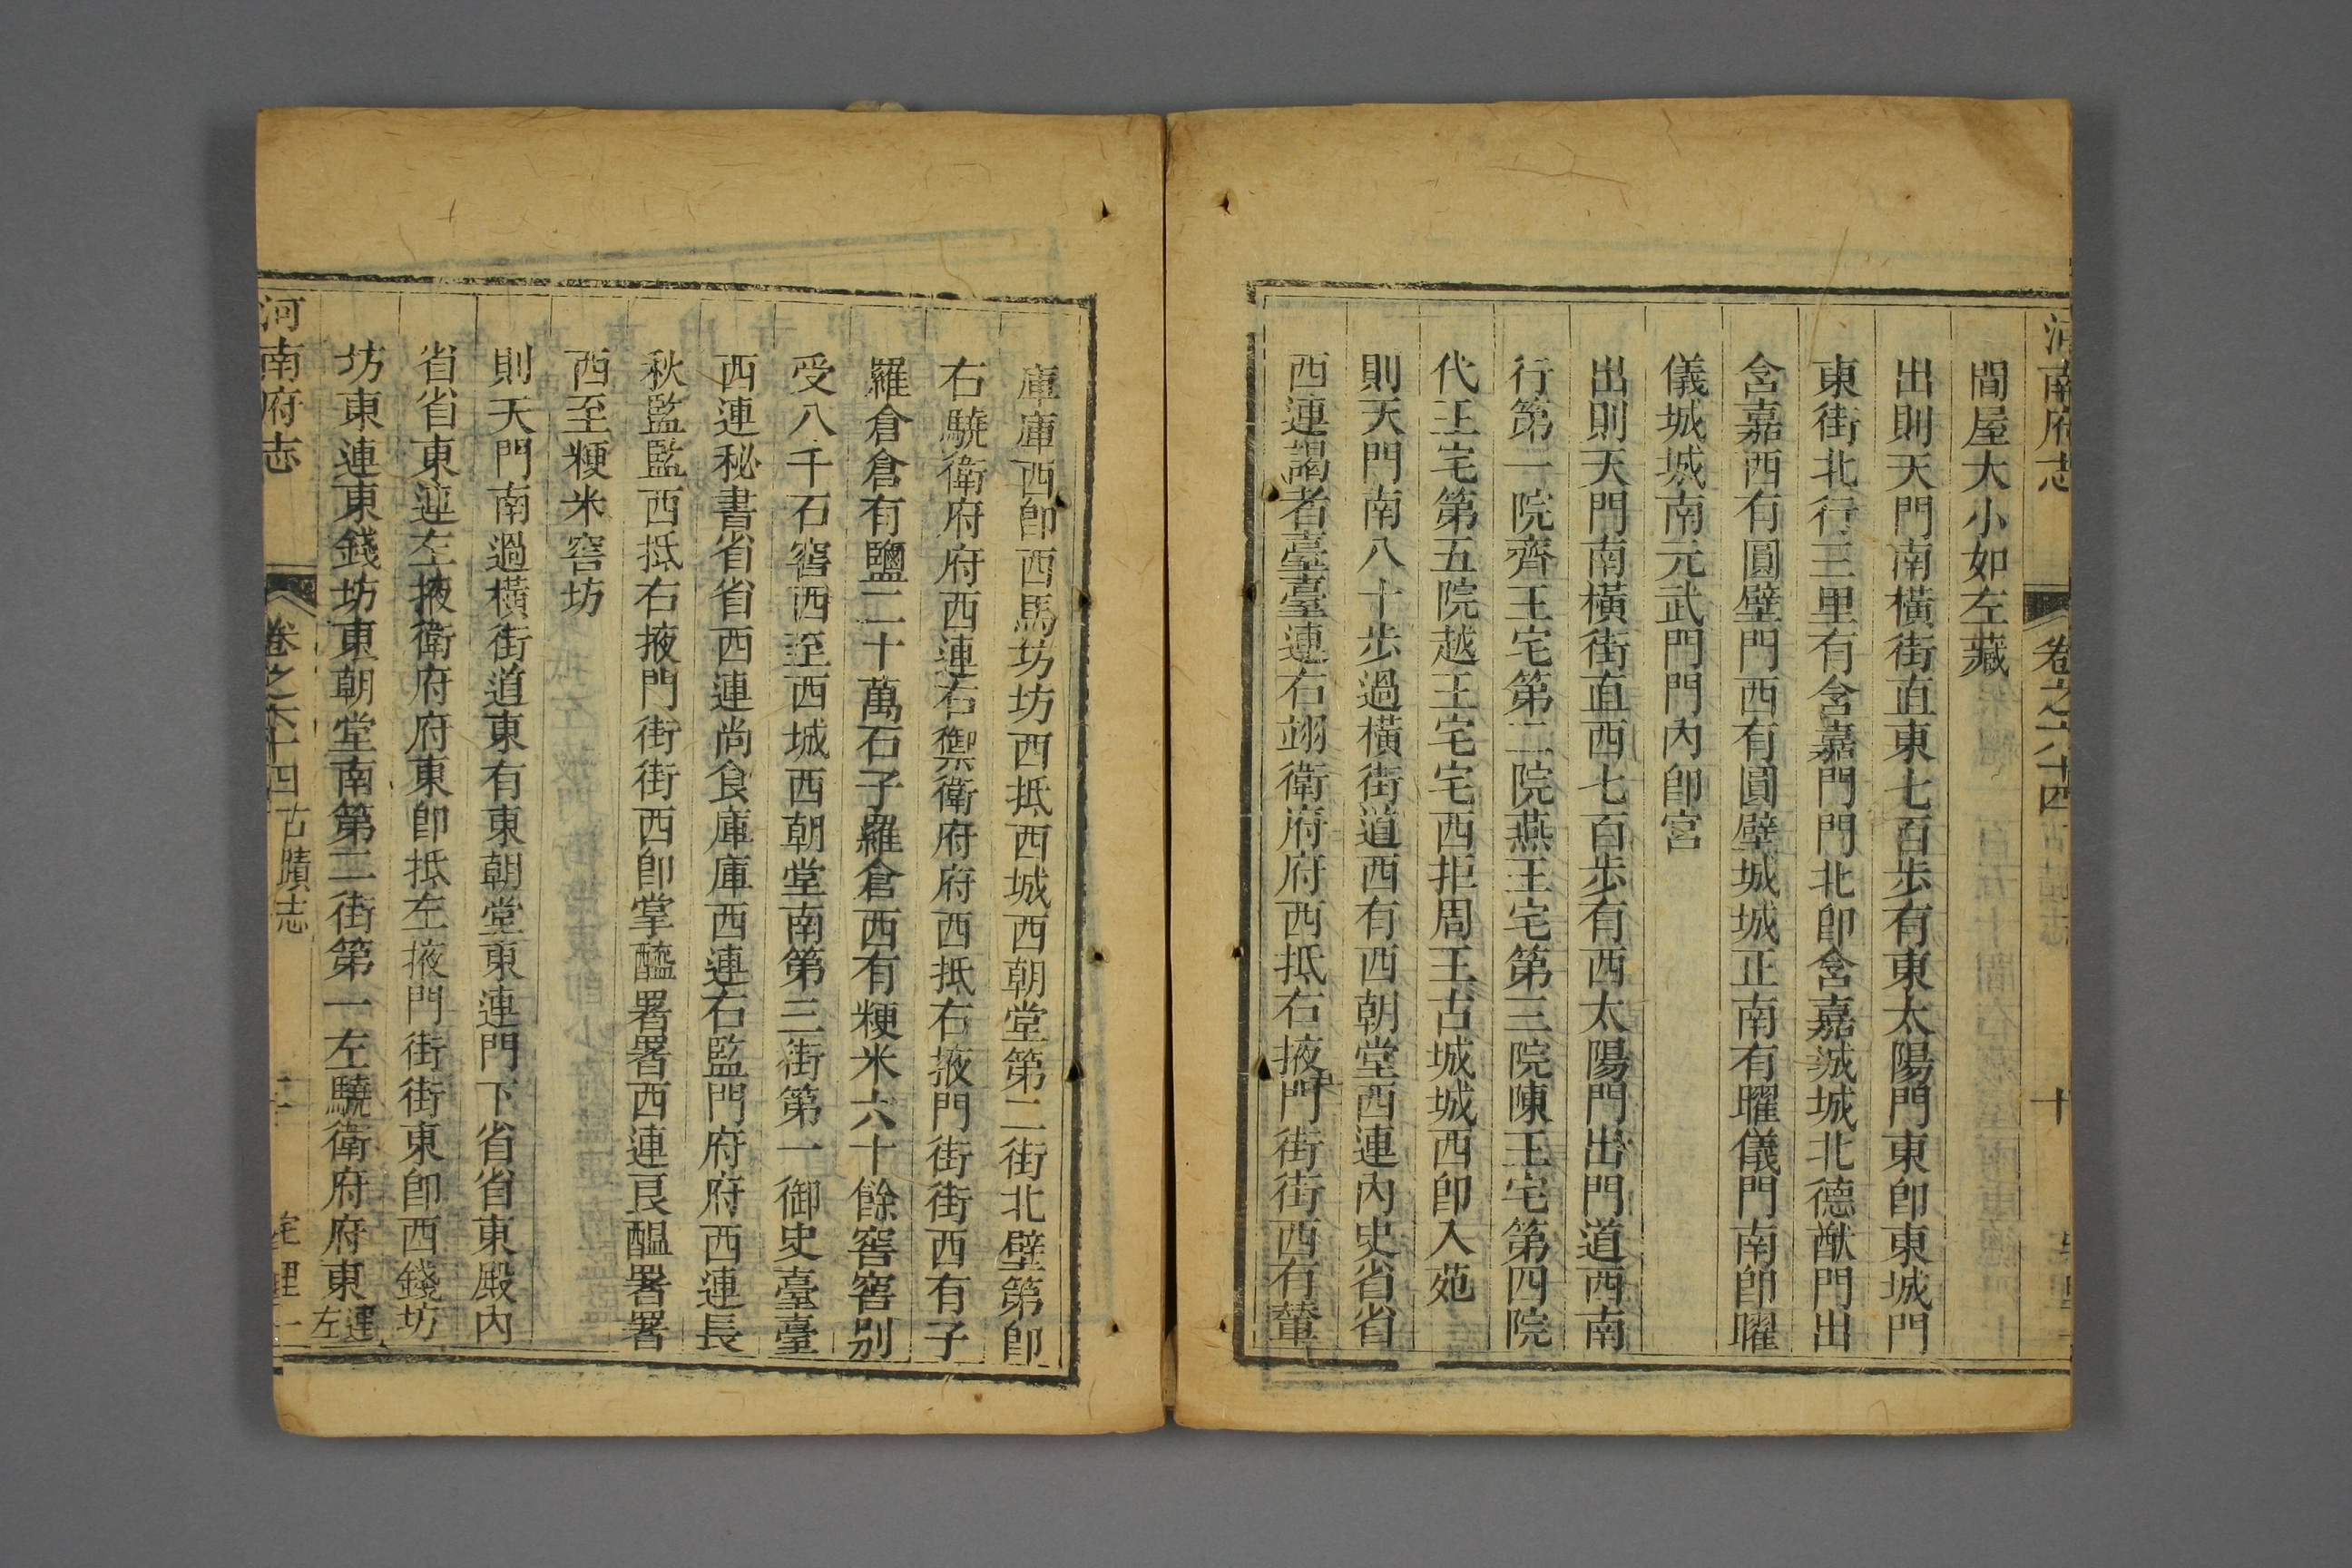 河南府志　卷之六十四　十
間屋大小如左藏
出則天門南橫街直東七百步有東太陽門東卽東城門
東街北行三里有含嘉門門北卽含嘉城城北德猷門出
含嘉西有圓壁門西有圓壁城城正南有曜儀門南卽曜
儀城城南元武門門內卽宮
出則天門南橫街直西七百步有西太陽門出門道西南
行第一院齊王宅第二院燕王宅第三院陳王宅第四院
代王宅第五院越王宅宅西拒周王古城城西卽入苑
則天門南八十步過橫街道西有西朝堂西連內史省省
西連謁者臺臺連右翊衛府府西抵右掖門街街西有輦
庫庫西卽西馬坊坊西抵西城西朝堂第二街北壁第卽
右驍衛府府西連右禦衛府府西抵右掖門街街西有子
羅倉倉有鹽二十萬石子羅倉西有粳米六十餘窖窖别
受八千石窖西至西城西朝堂南第三街第一御史臺臺
西連秘書省省西連尚食庫庫西連右監門府府西連長
秋監監西抵右掖門街街西卽掌醢署署西連良醞署署
西至粳米窖坊
則天門南過橫街道東有東朝堂東連門下省省東殿內
省省東連左掖衛府府東卽抵左掖門街街東卽西錢坊
坊東連東錢坊東朝堂南第二街第一左驍衛府府東連左
河南府志　卷之六十四古蹟志　十一　宅里一